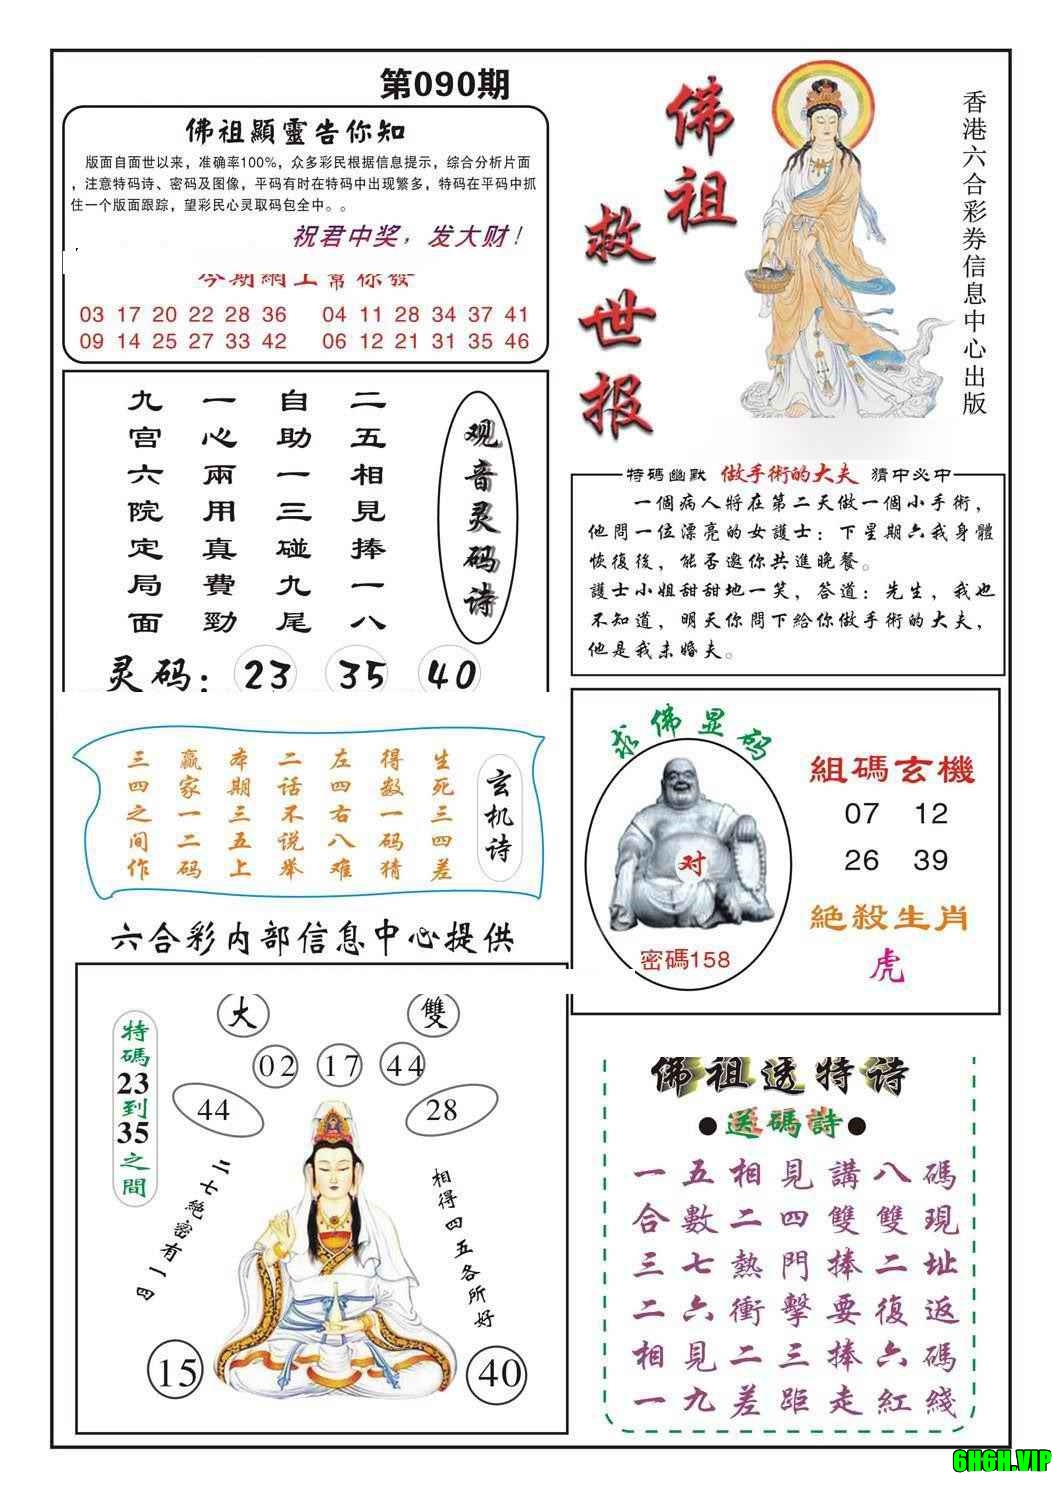 第090期
佛祖顯靈告你知
版面自面世以来，准确率100%，众多彩民根据信息提示，综合分析片面
，注意特码诗、密码及图像，平码有时在特码中出现繁多，特码在平码中抓
住一个版面跟踪，望彩民心灵取码包全中。。
祝君中奖，发大财！
今期網上幫你發
03 17 20 22 28 36 04 11 28 34 37 41
09 14 25 27 33 42 06 12 21 31 35 46
佛祖
救世报
香港六合彩券信息中心出版
观音灵码诗
二五相見捧一八
自助一三碰九尾
一心兩用真費勁
九宫六院定局面
灵码：23 35 40
特碼幽默 做手術的大夫 猜中必中
一個病人將在第二天做一個小手術，
他問一位漂亮的女護士：下星期六我身體
恢復後，能否邀你共進晚餐。
護士小姐甜甜地一笑，答道：先生，我也
不知道，明天你問下給你做手術的大夫，
他是我未婚夫。
玄机诗
生死三四差
得数一码猜
左四右八难
二话不说举
本期三五上
赢家一二码
三四之间作
求佛显码
对
密碼158
組碼玄機
07 12
26 39
絕殺生肖
虎
六合彩内部信息中心提供
特碼23到35之間
大 雙
02 17 44
44 28
二七絶密有一四
相得四五各所好
15 40
佛祖透特诗
●送碼詩●
一五相見講八碼
合數二四雙雙現
三七熱門捧二址
二六衝擊要復返
相見二三捧六碼
一九差距走紅綫
6H6H.VIP